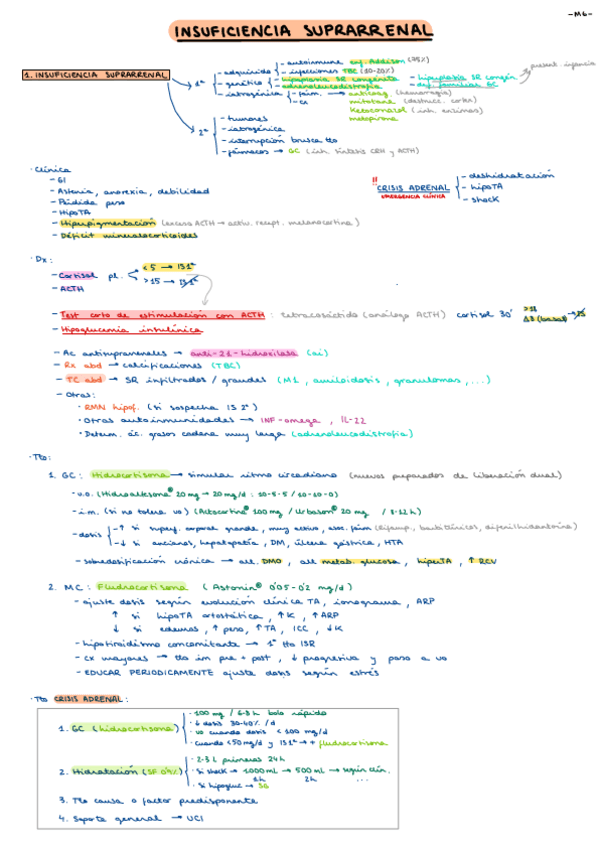 -M6-
INSUFICIENCIA SUPRARRENAL
1. INSUFICIENCIA SUPRARRENAL
1ª
- adquirida
- autoinmune enf. Addison (75%)
- infecciones TBC (10-20%)
- genética
- hiperplasia SR congénita
- adrenoleucodistrofia
- hipoplasia SR congén
- def. familiar GC
present. infancia
- iatrogénica
- fárm. → anticoag. (hemorragia)
mitotane (destrucc. cortex)
ketoconazol (inh. enzimas)
metopirona
- cx
2ª
- tumores
- iatrogénica
- interrupción brusca tto
- fármacos → GC (inh. síntesis CRH y ACTH)
· Clínica
- GI
- Astenia, anorexia, debilidad
- Pérdida peso
- HipoTA
- Hiperpigmentación (exceso ACTH → activ. recept. melanocortina)
- Déficit mineralocorticoides
!! CRISIS ADRENAL
EMERGENCIA CLÍNICA
- deshidratación
- hipoTA
- shock
· Dx:
- Cortisol pl.
< 5 → IS 1ª
> 15 → IS 1ª
- ACTH
- Test corto de estimulación con ACTH : tetracosáctido (análogo ACTH) cortisol 30'
>18
Δ8 (basal) → IS
- Hipoglucemia insulínica
- Ac antisuprarrenales → anti-21-hidroxilasa (ai)
- Rx abd → calcificaciones (TBC)
- TC abd → SR infiltrados / grandes (M1, amiloidosis, granulomas, ...)
- Otras:
· RMN hipof. (si sospecha IS 2ª)
· Otras autoinmunidades → INF-omega, IL-22
· Determ. ác. grasos cadena muy larga (adrenoleucodistrofia)
· Tto:
1. GC : Hidrocortisona → simular ritmo circadiano (nuevos preparados de liberación dual)
- v.o. (Hidroaltesona® 20 mg → 20 mg/d : 10-5-5 / 10-10-0)
- i.m. (si no tolera vo) (Actocortina® 100 mg / Urbason® 20 mg / 8-12 h)
- dosis
- ↑ si superf. corporal grande, muy activo, asoc. fárm (rifamp., barbitúricos, difenilhidantoína)
- ↓ si ancianos, hepatopatía, DM, úlcera gástrica, HTA
- sobredosificación crónica → alt. DMO, alt metab. glucosa, hiperTA, ↑ RCV
2. MC : Fludrocortisona (Astonin® 0'05-0'2 mg/d)
- ajuste dosis según evolución clínica TA, ionograma, ARP
↑ si hipoTA ortostática, ↑K, ↑ARP
↓ si edemas, ↑ peso, ↑TA, ICC, ↓K
- hipotiroidismo concomitante → 1º tto ISR
- cx mayores → tto im pre + post, ↓ progresiva y paso a vo
- EDUCAR PERIODICAMENTE ajuste dosis según estrés
· Tto CRISIS ADRENAL :
1. GC (hidrocortisona)
· 100 mg / 6-8 h bolo rápido
· 6 dosis 30-40% /d
· vo cuando dosis < 100 mg/d
· cuando <50 mg/d y IS 1ª → + fludrocortisona
2. Hidratación (SF 0'9%)
· 2-3 L primeras 24h
· Si shock → 1000 mL → 500 mL → según clín.
2h ...
· Si hipogluc → SG
3. Tto causa o factor predisponente
4. Soporte general → UCI